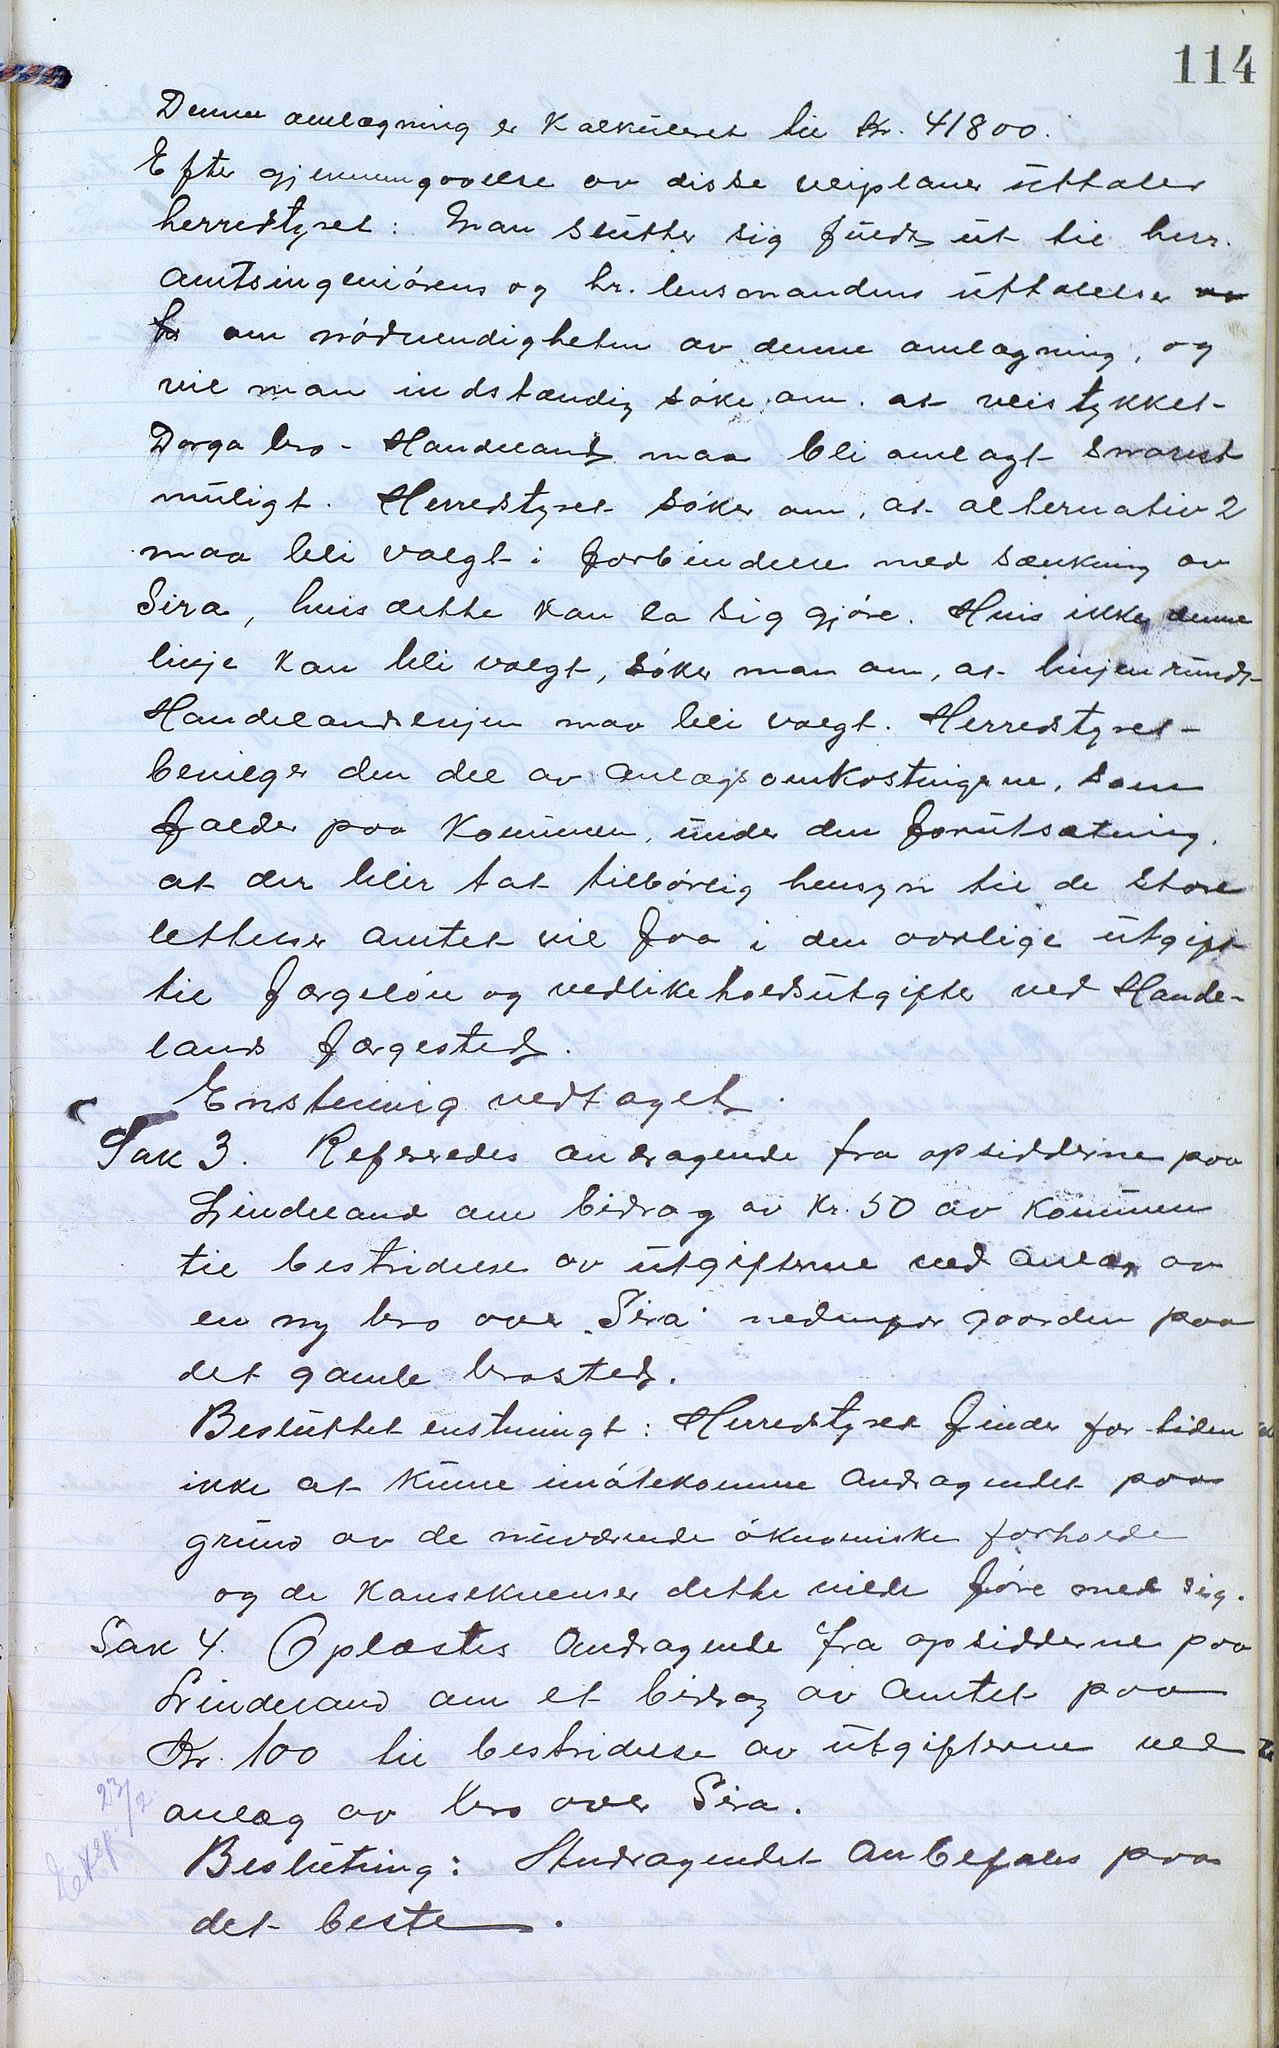 114
Denne omlægning er kalkuleret til Kr. 41800.
Efter gjennemgaaelse av disse veiplaner uttaler
herredstyret: Man slutter sig fuldt ut til herr.
amtsingeniørens og hr. lensmandens uttalelser
om nødvendigheten av denne omlægning, og
vil man indstændig søke om, at veistykket
Dorga bro - Handeland maa bli omlagt snarest
muligt. Herredstyret søker om, at alternativ 2
maa bli valgt i forbindelse med sænkning av
Sira, hvis dette kan la sig gjøre. Hvis ikke denne
linje kan bli valgt, søker man om, at linjen rundt
Handelandslinjen maa bli valgt. Herredstyret
bevilger den del av anlægsomkostningerne, som
falder paa kommunen, under den forutsætning,
at der blir tat tilbørlig hensyn til de store
lettelser amtet vil faa i den aarlige utgift
til færgeløn og vedlikeholdsutgifter ved Hande-
lands færgested.
Enstemmig vedtaget.
Sak 3. Refereredes andragende fra opsidderne paa
Lindeland om bidrag av kr. 50 av kommunen
til bestridelse av utgifterne ved anlæg av
en ny bro over "Sira" nedenfor gaarden paa
det gamle brosted.
Besluttet enstemmigt: Herredstyret finder for tiden
ikke at kunne imøtekomme andragendet paa
grund av de nuværende økonomiske forholde
og de konsekvenser dette vilde føre med sig.
Sak 4. Oplæstes andragende fra opsidderne paa
Lindeland om et bidrag av amtet paa
Kr. 100 til bestridelse av utgifterne ved
anlæg av bro over Sira.
23/2
Beslutning: Andragendet anbefales paa
det beste.